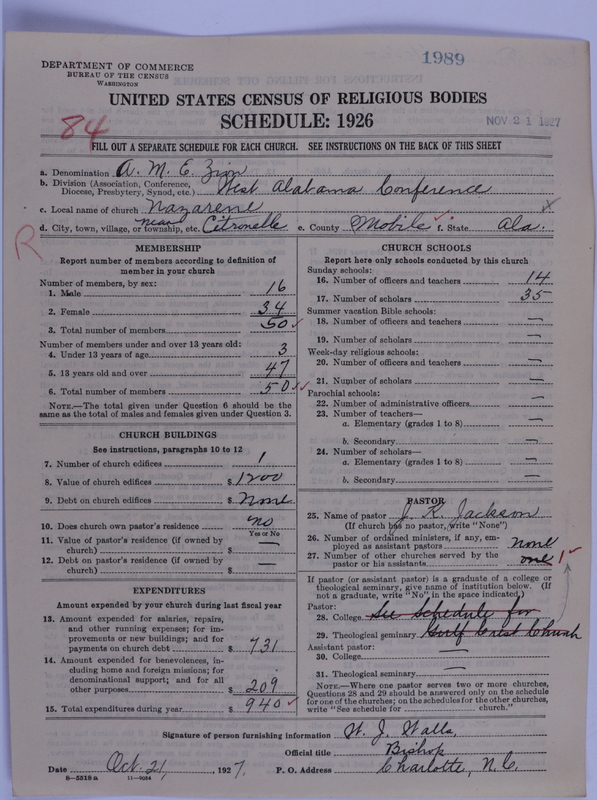 1989
DEPARTMENT OF COMMERCE
BUREAU OF THE CENSUS
WASHINGTON
UNITED STATES CENSUS OF RELIGIOUS BODIES
SCHEDULE: 1926
NOV 21 1927
84
FILL OUT A SEPARATE SCHEDULE FOR EACH CHURCH. SEE INSTRUCTIONS ON THE BACK OF THIS SHEET
a. Denomination A. M. E. Zion
b. Division (Association, Conference, Diocese, Presbytery, Synod, etc.) West Alabama Conference
c. Local name of church Nazarene
d. City, town, village, or township, etc. near Citronelle e. County Mobile f. State Ala.
R
MEMBERSHIP
Report number of members according to definition of
member in your church
Number of members, by sex:
1. Male 16
2. Female 34
3. Total number of members 50
Number of members under and over 13 years old:
4. Under 13 years of age 3
5. 13 years old and over 47
6. Total number of members 50
NOTE.—The total given under Question 6 should be the
same as the total of males and females given under Question 3.
CHURCH BUILDINGS
See instructions, paragraphs 10 to 12
7. Number of church edifices 1
8. Value of church edifices $ 1200
9. Debt on church edifices $ None
10. Does church own pastor's residence no
Yes or No
11. Value of pastor's residence (if owned by
church) $ —
12. Debt on pastor's residence (if owned by
church) $ —
EXPENDITURES
Amount expended by your church during last fiscal year
13. Amount expended for salaries, repairs,
and other running expenses; for im-
provements or new buildings; and for
payments on church debt $ 731
14. Amount expended for benevolences, in-
cluding home and foreign missions; for
denominational support; and for all
other purposes $ 209
15. Total expenditures during year $ 940
CHURCH SCHOOLS
Report here only schools conducted by this church
Sunday schools:
16. Number of officers and teachers 14
17. Number of scholars 35
Summer vacation Bible schools:
18. Number of officers and teachers —
19. Number of scholars —
Week-day religious schools:
20. Number of officers and teachers —
21. Number of scholars —
Parochial schools:
22. Number of administrative officers —
23. Number of teachers—
a. Elementary (grades 1 to 8) —
b. Secondary —
24. Number of scholars—
a. Elementary (grades 1 to 8) —
b. Secondary —
PASTOR
25. Name of pastor J. R. Jackson
(If church has no pastor, write "None")
26. Number of ordained ministers, if any, em-
ployed as assistant pastors none
27. Number of other churches served by the
pastor or his assistants one 1
If pastor (or assistant pastor) is a graduate of a college or
theological seminary, give name of institution below. (If
not a graduate, write "No" in the space indicated.)
Pastor:
28. College See Schedule for
29. Theological seminary Gulf Crest Church
Assistant pastor:
30. College —
31. Theological seminary —
NOTE.—Where one pastor serves two or more churches,
Questions 28 and 29 should be answered only on the schedule
for one of the churches; on the schedules for the other churches,
write "See schedule for ______ church."
Signature of person furnishing information W. J. Walls,
Official title Bishop
Date Oct. 21, , 1927. P. O. Address Charlotte, N. C.
8—5518 a 11—9034